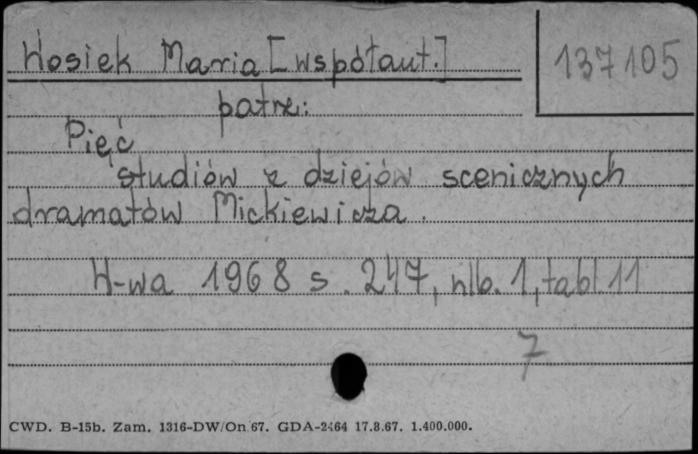 Wosiek Maria [współaut.]
137105
patrz:
Pięć
studiów z dziejów scenicznych
dramatów Mickiewicza.
W-wa 1968 s. 247, nlb. 1, tabl 11
7
CWD. B-15b. Zam. 1316-DW/On 67. GDA-2464 17.8.67. 1.400.000.